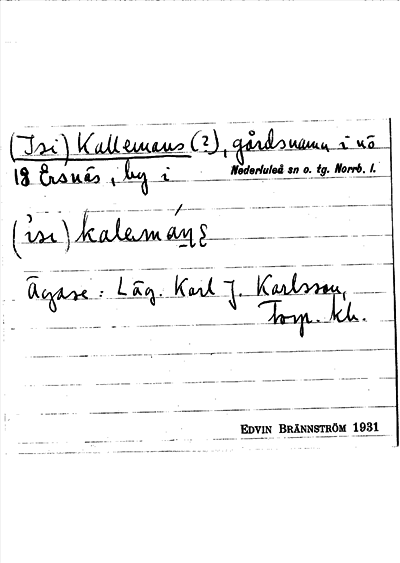 (Isi) Kallemans (?), gårdsnamn i nö
18 Ersnäs, by i Nederluleå sn o. tg. Norrb. l.
Ägare: Läg. Karl J. Karlsson,
Torp. kh.
EDVIN BRÄNNSTRÖM 1931